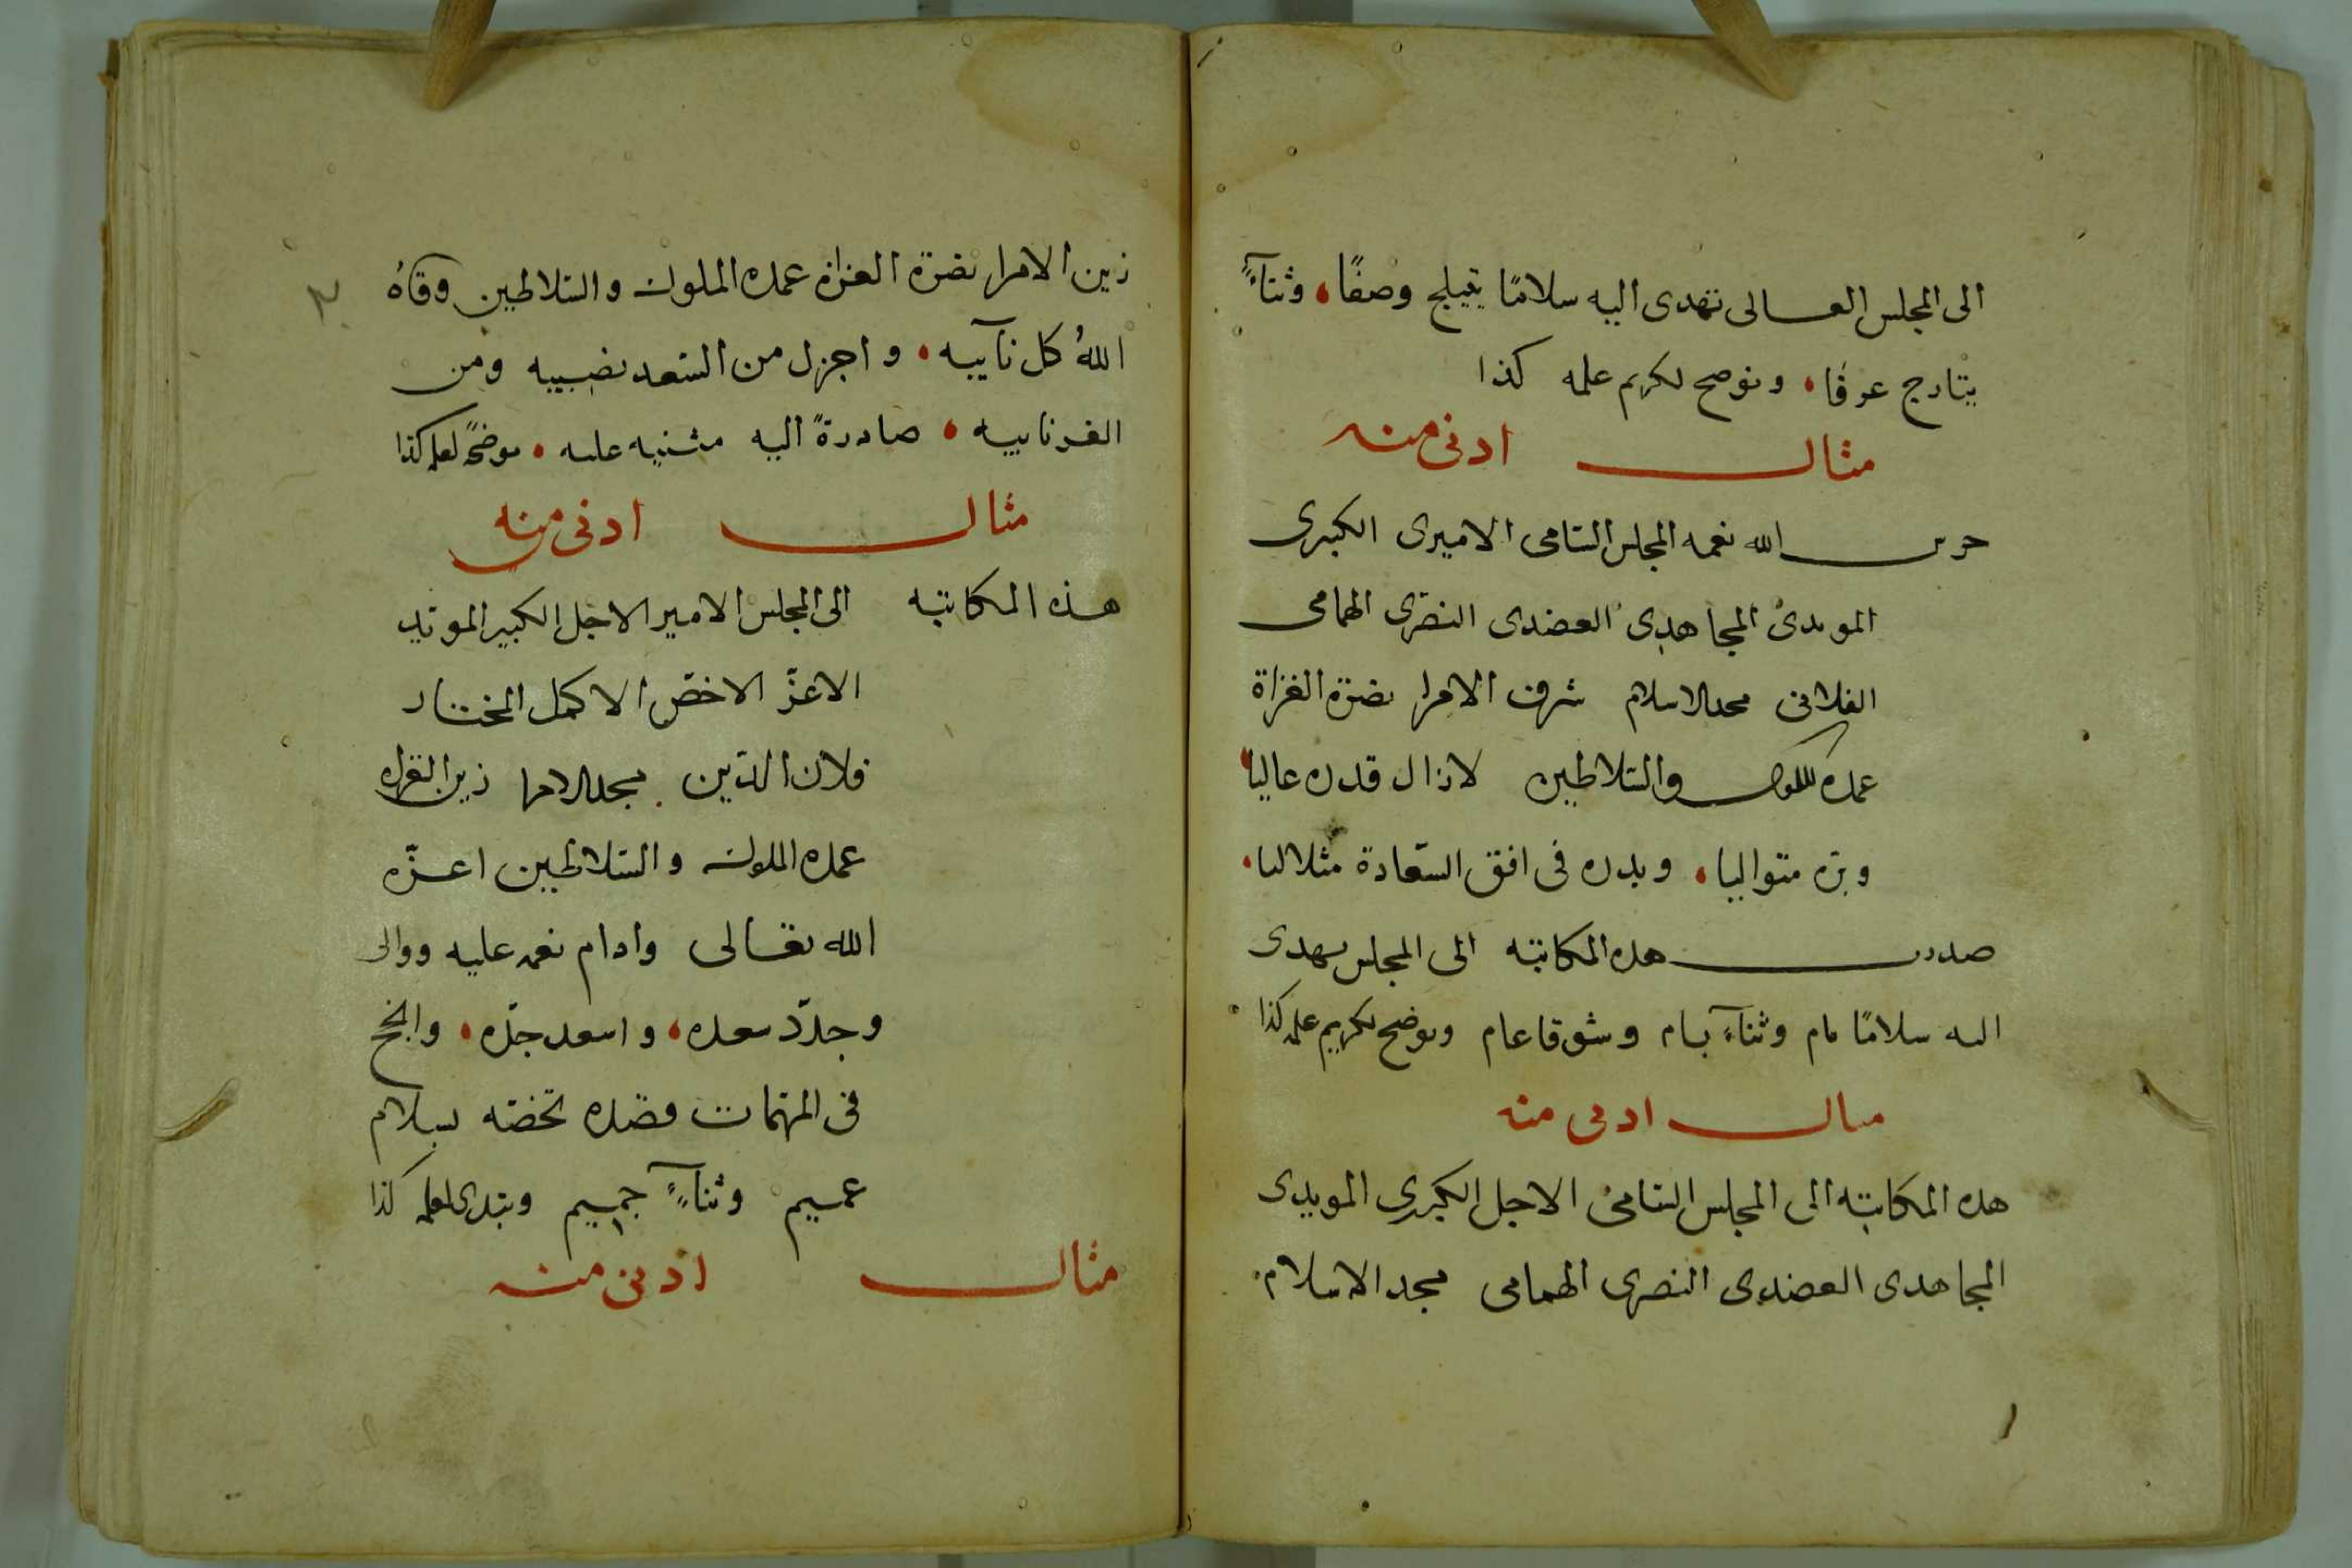 الى المجلس العــالى تهدى اليه سلامًا يتبلج وصفًا، وثنآءً
يتارج عرفا، ونوضح لكريم علمه كذا
مثال ادنى منه
حرس الله نعمه المجلس السامى الاميرى الكبيرى
المويدى المجاهدى العضدى النصرى الهمامى
الفلانى مجد الاسلام شرف الامرا نصرة الغزاة
عمدة الملوك والسلاطين لا زال قدره عاليا،
وبره متواليا، وبدره فى افق السّعادة متلاليا،
صدرت هذه المكاتبه الى المجلس تهدى
اليه سلامًا تام وثنآء بسام وشوقا عام ونوضح لكريم علمه كذا
مثال ادنى منه
هذه المكاتبة الى المجلس السامى الاجل الكبيرى المويدى
المجاهدى العضدى النصرى الهمامى مجد الاسلام
زين الامرا نصرة الغزاة عمدة الملوك والسلاطين وقاهُ
اللهُ كل نآيبه، واجزل من السّعد نصيبه ومن
صادرةً اليه مثنيه عليه، موضحًه لعلمه كذا
مثال ادنى منه
هذه المكاتبه الى المجلس الامير الاجل الكبير المويد
الاعزّ الاخصّ الاكمل المختار
فلان الدّين مجد الامرا زين الغزاه
عمدة الملوك والسّلاطين اعــزّه
الله تعــالى وادام نعمه عليه ووالى
وجدّد سعده، واسعد جدّه، وانجح
فى المهمات قصده تخصّه بسلام
عميم وثنآءً جميم وتبدى لعلمه كذا
مثال ادنى منه